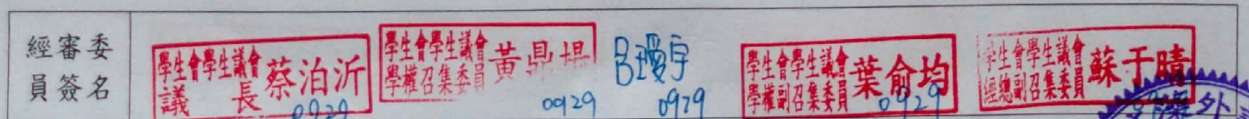 經審委
員簽名
學生會學生議會
議長 蔡泊沂
0929
學生會學生議會
學權召集委員 黃鼎
0929
呂
宇
0929
學生會學生議會
學權副召集委員 葉俞均
0929
學生會學生議會
經總副召集委員 蘇于晴
外